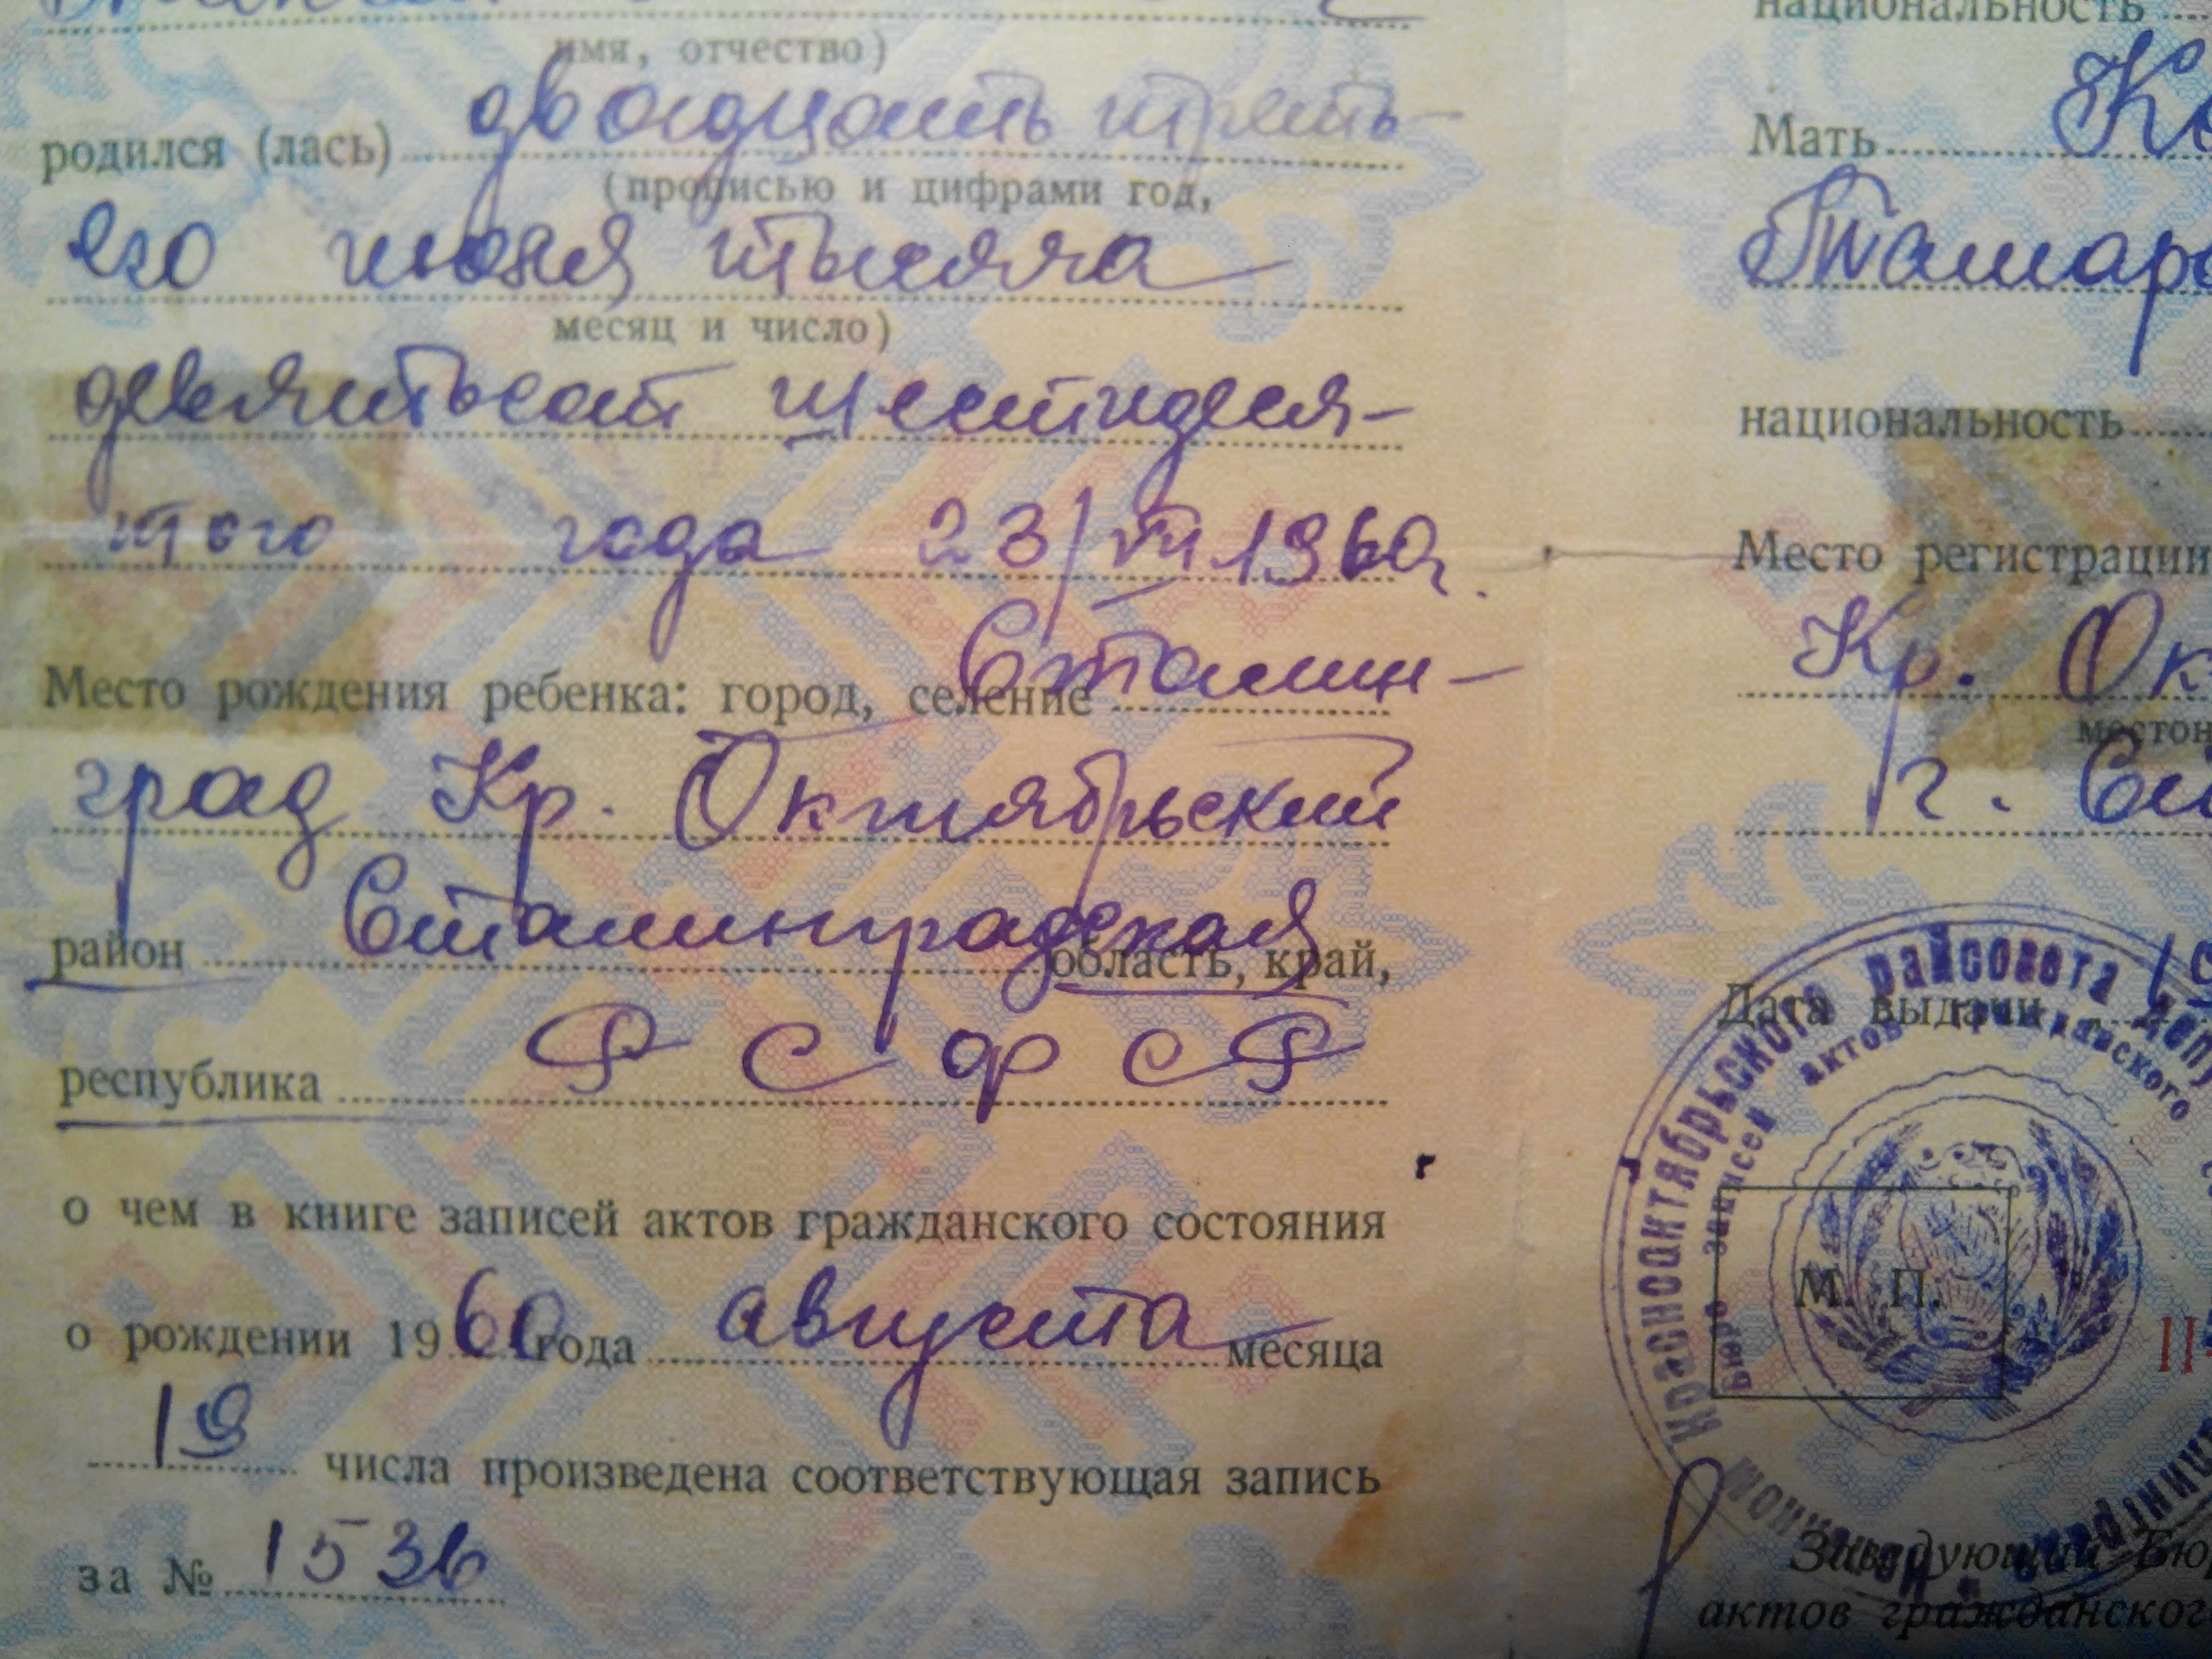 имя, отчество)
родился (лась) двадцать треть-
(прописью и цифрами год,
его июля тысяча
месяц и число)
девятьсот шестидеся-
того года 23/VII 1960г.
Место рождения ребенка: город, селение Сталин-
град Кр. Октябрьский
район Сталинградская область, край,
республика РСФСР
о чем в книге записей актов гражданского состояния
о рождении 1960 года августа месяца
19 числа произведена соответствующая запись
за № 1536
национальность
Мать
Тамара
национальность
Место регистрации
Кр. Ок
г. Ст
Дата выдачи
Краснооктябрьского райсовета
Бюро записей актов гражданского
М. П.
Заведующий Бю
актов гражданског